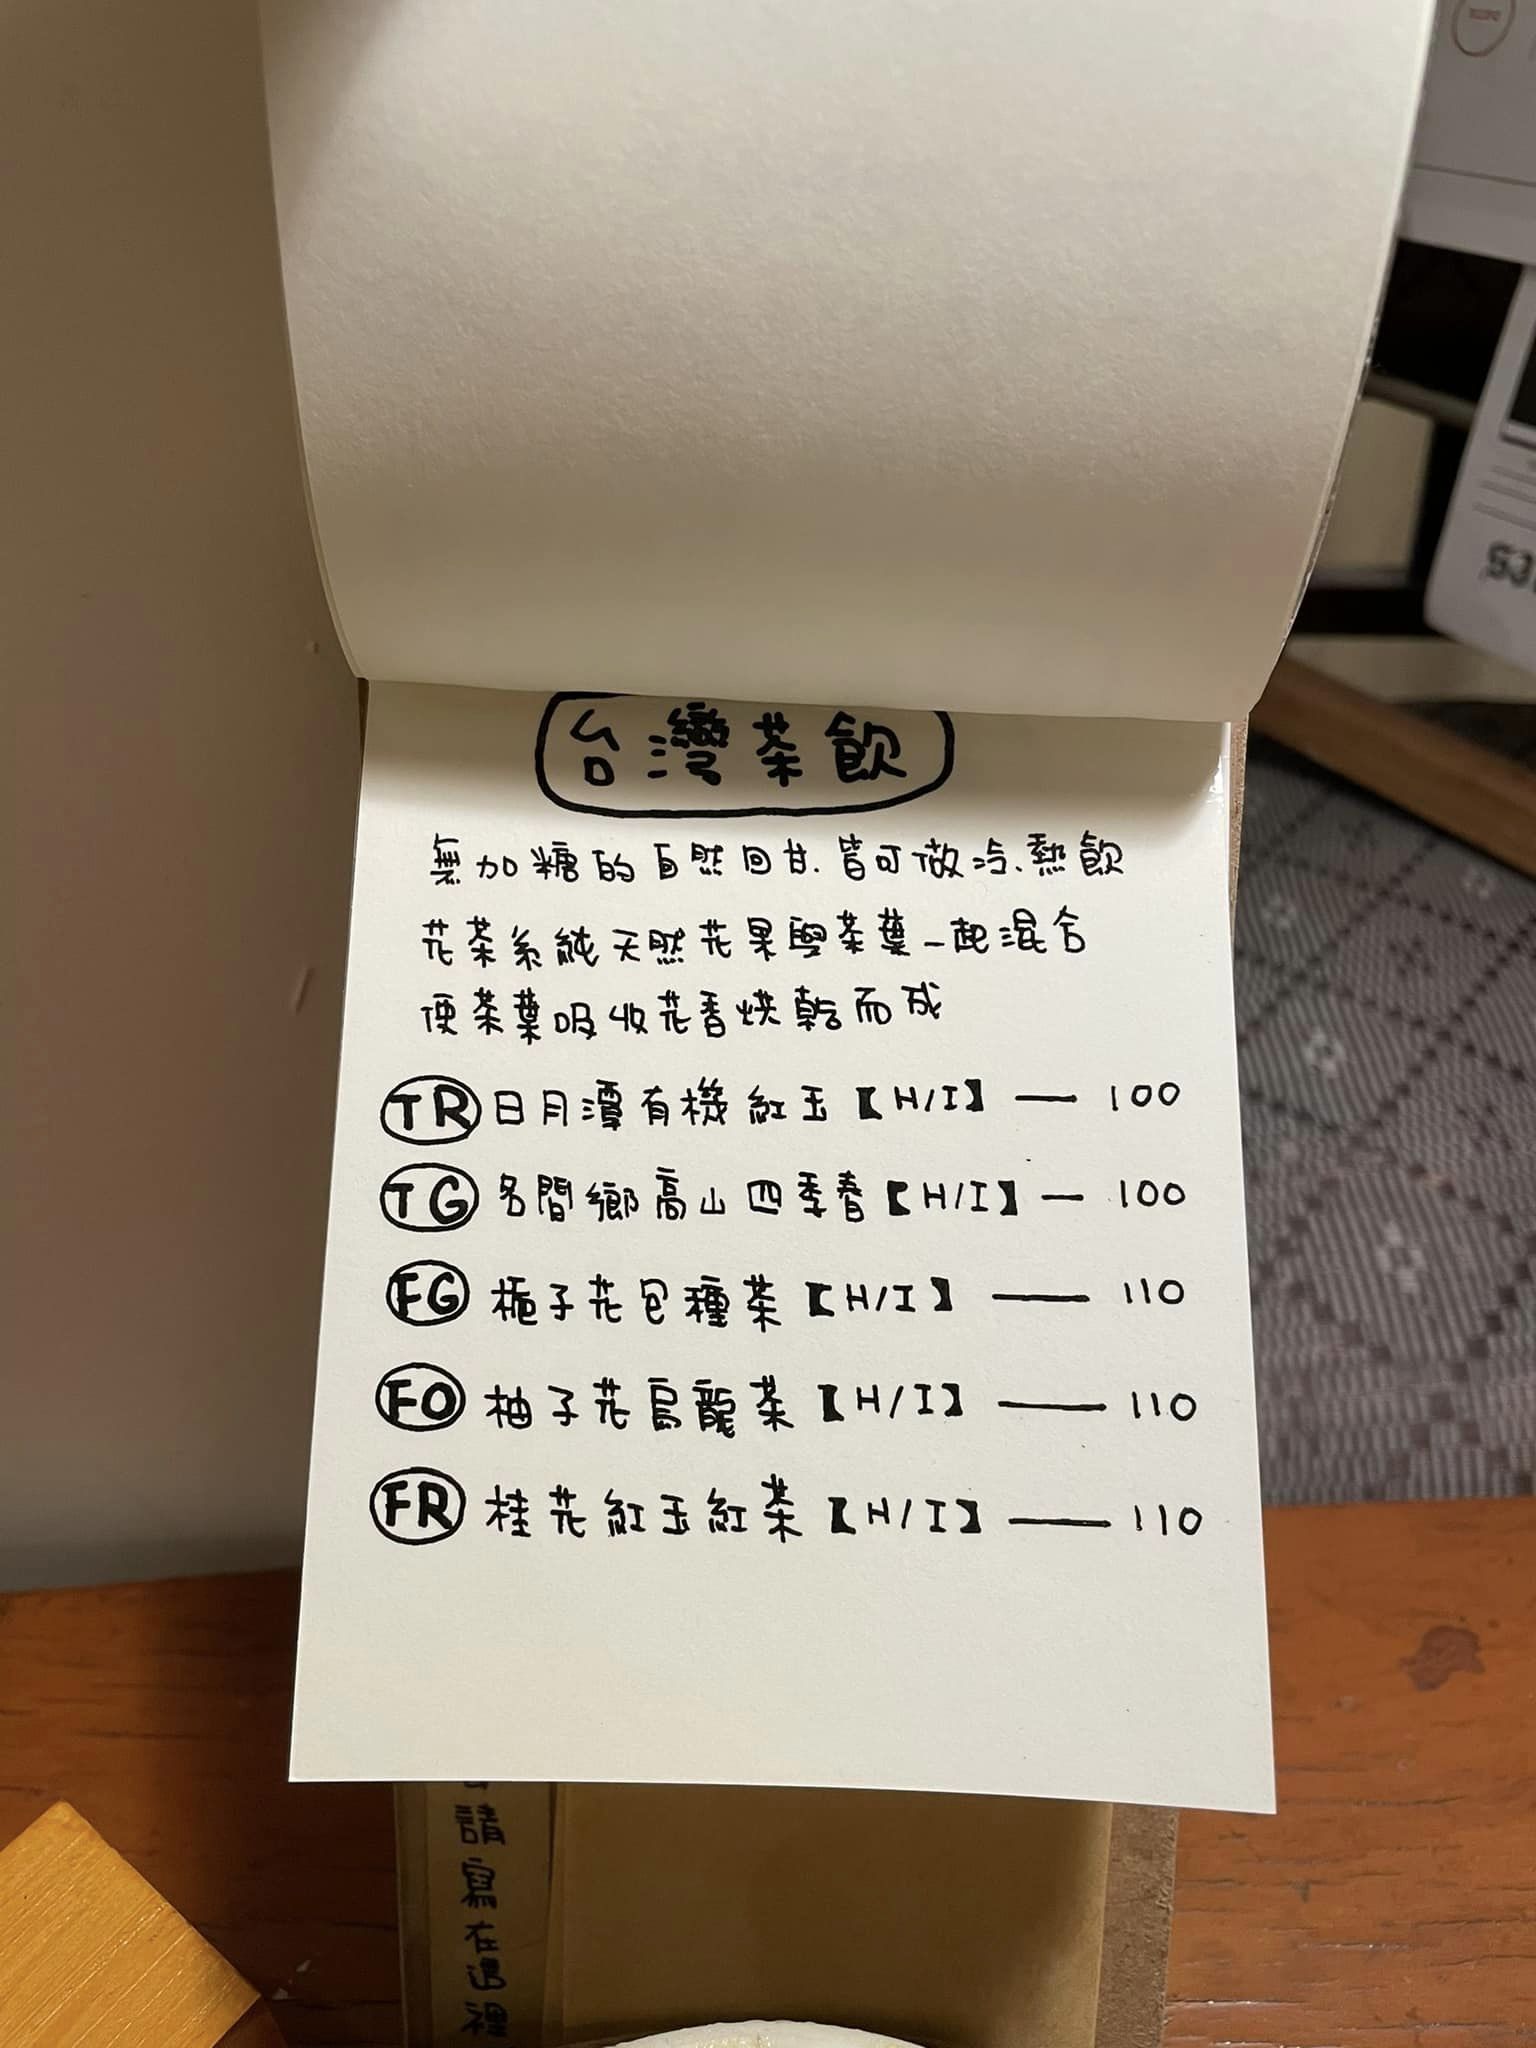 台灣茶飲
無加糖的自然回甘、皆可做冷、熱飲
花茶系純天然花果與茶葉一起混合
使茶葉吸收花香烘乾而成
TR 日月潭有機紅玉【H/I】— 100
TG 名間鄉高山四季春【H/I】— 100
FG 梔子花包種茶【H/I】— 110
FO 柚子花烏龍茶【H/I】— 110
FR 桂花紅玉紅茶【H/I】— 110
請寫在這裡